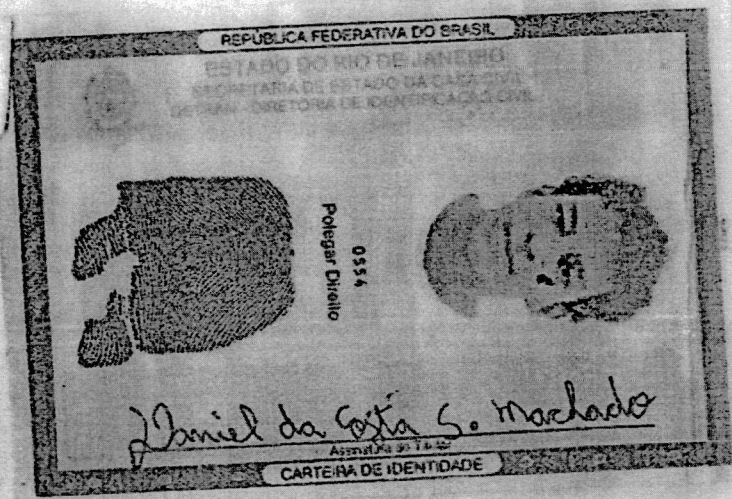 REPÚBLICA FEDERATIVA DO BRASIL
ESTADO DO RIO DE JANEIRO
SECRETARIA DE ESTADO DA CASA CIVIL
DETRAN - DIRETORIA DE IDENTIFICAÇÃO CIVIL
0554
Polegar Direito
Daniel da Costa S. Machado
CARTEIRA DE IDENTIDADE